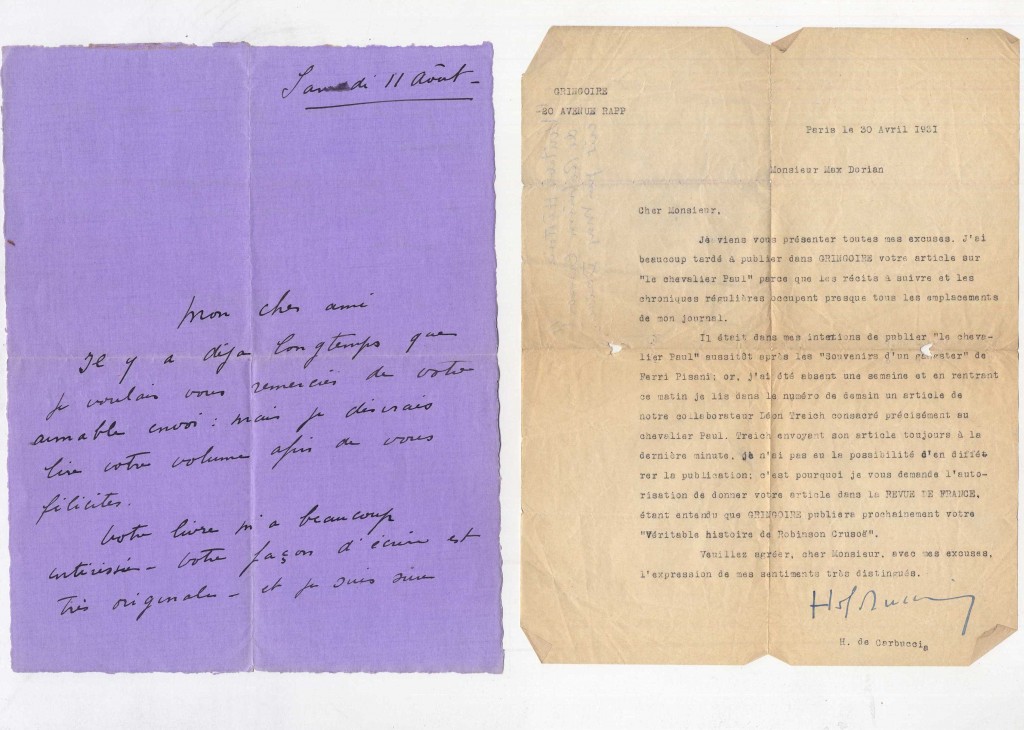 Samedi 11 Août -
Mon cher ami
Il y a déja longtemps que
je voulais vous remercier de votre
aimable envoi : mais je désirais
lire votre volume afin de vous
féliciter.
Votre livre m'a beaucoup
intéressée - votre façon d'écrire est
très originale - et je suis sûre
GRINGOIRE
-80 AVENUE RAPP
Paris le 30 Avril 1931
Monsieur Max Dorian
Cher Monsieur,
Je viens vous présenter toutes mes excuses. J'ai
beaucoup tardé à publier dans GRINGOIRE votre article sur
"le chevalier Paul" parce que les récits à suivre et les
chroniques régulières occupent presque tous les emplacements
de mon journal.
Il était dans mes intenions de publier "le cheva-
lier Paul" aussitôt après les "Souvenirs d'un gangster" de
Ferri Pisani; or, j'ai été absent une semaine et en rentrant
ce matin je lis dans le numéro de demain un article de
notre collaborateur Léon Treich consacré précisément au
chevalier Paul. Treich envoyant son article toujours à la
dernière minute, je n'ai pas eu la possibilité d'en diffé-
rer la publication; c'est pourquoi je vous demande l'auto-
risation de donner votre article dans la REVUE DE FRANCE,
étant entendu que GRINGOIRE publiera prochainement votre
"Véritable histoire de Robinson Crusoë".
Veuillez agréer, cher Monsieur, avec mes excuses,
l'expression de mes sentiments très distingués.
H. de Carbuccia